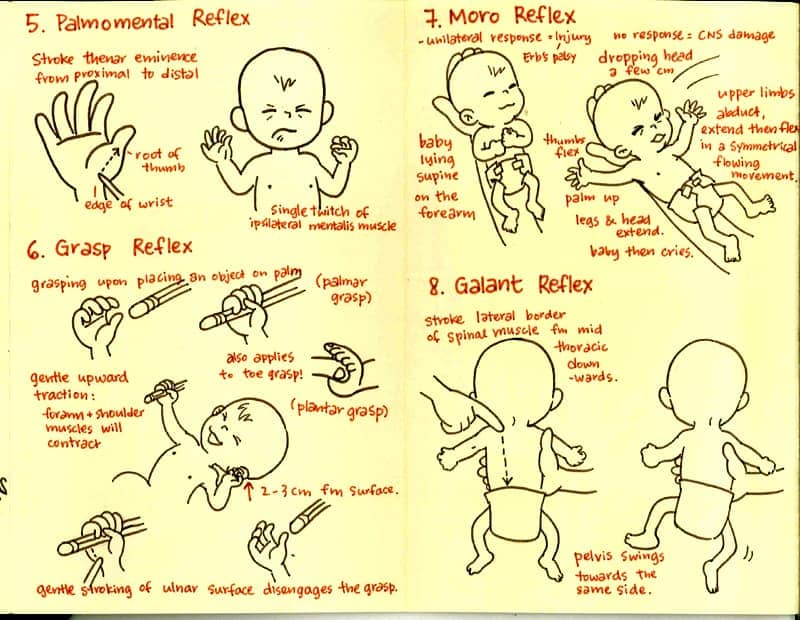 5. Palmomental Reflex
Stroke thenar eminence
from proximal to distal
root of
thumb
edge of wrist
Single twitch of
ipsilateral mentalis muscle
6. Grasp Reflex
grasping upon placing an object on palm
(palmar
grasp)
also applies
to toe grasp!
(plantar grasp)
gentle upward
traction:
forearm + shoulder
muscles will
contract
↑ 2-3 cm fm surface.
gentle stroking of ulnar surface disengages the grasp.
7. Moro Reflex
- unilateral response = Injury
Erb's palsy
no response = CNS damage
dropping head
a few cm
upper limbs
abduct,
extend then flex
in a symmetrical
flowing
movement.
baby
lying
supine
on the
forearm
thumbs
flex
palm up
legs & head
extend.
baby then cries.
8. Galant Reflex
stroke lateral border
of spinal muscle fm mid
thoracic
down
-wards.
pelvis swings
towards the
same side.